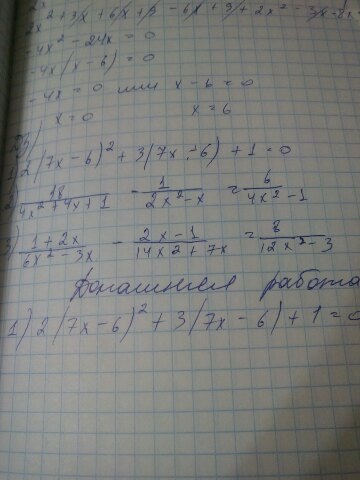 2x² + 3x + 6x + 9 - 6x + 9 + 2x² - 3x
-4x² - 24x = 0
-4x(x - 6) = 0
-4x = 0 или x - 6 = 0
x = 0 x = 6
1) 2(7x - 6)² + 3(7x - 6) + 1 = 0
2) 18/(4x² + 4x + 1) - 1/(2x² - x) = 6/(4x² - 1)
3) (1 + 2x)/(6x² - 3x) - (2x - 1)/(14x² + 7x) = 8/(12x² - 3)
Домашняя работа
1) 2(7x - 6)² + 3(7x - 6) + 1 = 0